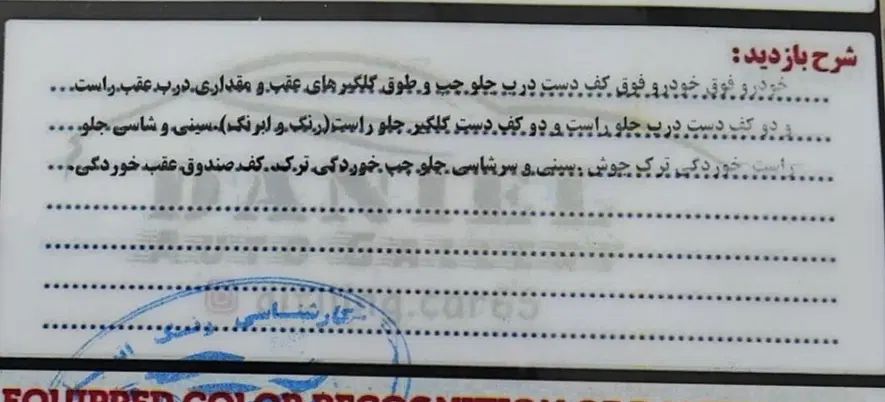 شرح بازدید:
خودرو فوق خودرو فوق کف دست درب جلو چپ و طوق گلگیر های عقب و مقداری درب عقب راست
و دو کف دست درب جلو راست و دو کف دست گلگیر جلو راست(رنگ و ابرنگ)،سینی و شاسی جلو
راست خوردگی ترک جوش ،سینی و سرشاسی جلو چپ خوردگی ترک، کف صندوق عقب خوردگی
DANIEL
AUTO GALLERY
کارشناسی رنگ
EQUIPPED COLOR RECOGNITION